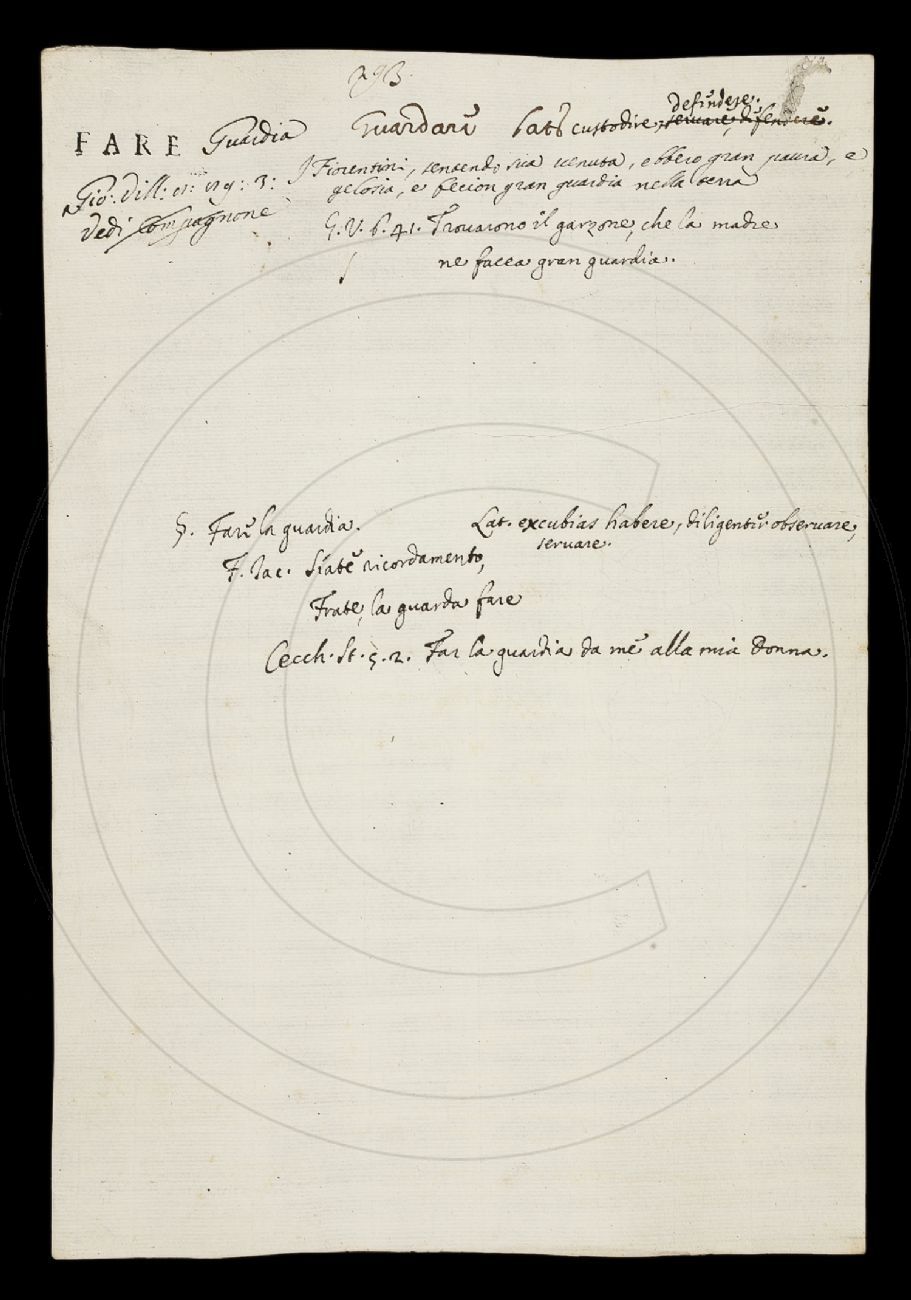 293.
defendere.
FARE Guardia Guardare Lat. custodire, servare, difendere.
Gio: Vill: 11: 119: 3: I Fiorentini, sentendo sua venuta, ebbero gran paura, e
gelosia, e fecion gran guardia nella terra
Vedi Compagnone
G. V. 6. 41. Trovarono il garzone, che la madre
ne facea gran guardia.
§. Fare la guardia. Lat. excubias habere, diligenter observare,
servare.
F. Iac. Siate ricordamento,
Frate, la guarda fare
Cecch. St. 5. 2. Far la guardia da me alla mia Donna.